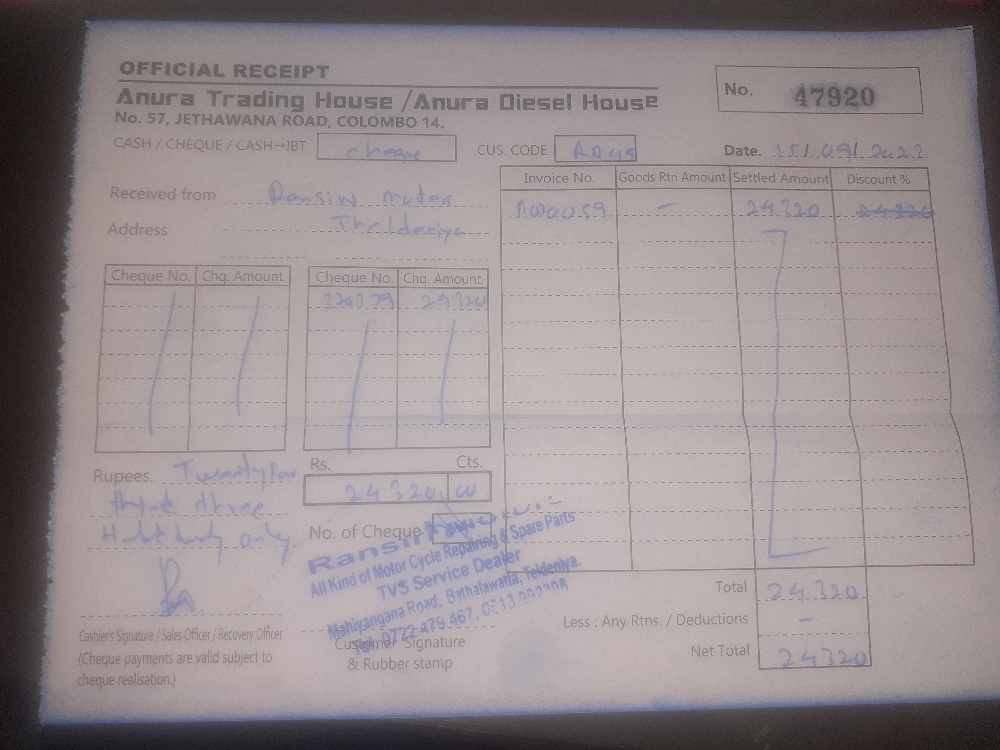 OFFICIAL RECEIPT
Anura Trading House /Anura Diesel House
No. 57, JETHAWANA ROAD, COLOMBO 14.
No. 47920
CASH / CHEQUE / CASH→IBT cheque
CUS. CODE
Date. 15/09/2022
Received from Ransiw moters
Address
Invoice No. Goods Rtn Amount Settled Amount Discount %
- 24320 24320
Cheque No. Chq. Amount.
Cheque No. Chq. Amount.
320379 24320
Rupees. Twenty four
three
only
Rs. Cts.
24320.00
No. of Cheque
All Kind of Motor Cycle Repairing & Spare Parts
TVS Service Dealer
Mahiyangana Road, Bathalawatta, Teldeniya.
Tel. 0722 479 467,
Cashier's Signature / Sales Officer / Recovery Officer
(Cheque payments are valid subject to
cheque realisation.)
Customer Signature
& Rubber stamp
Total 24320
Less : Any Rtns. / Deductions -
Net Total 24320